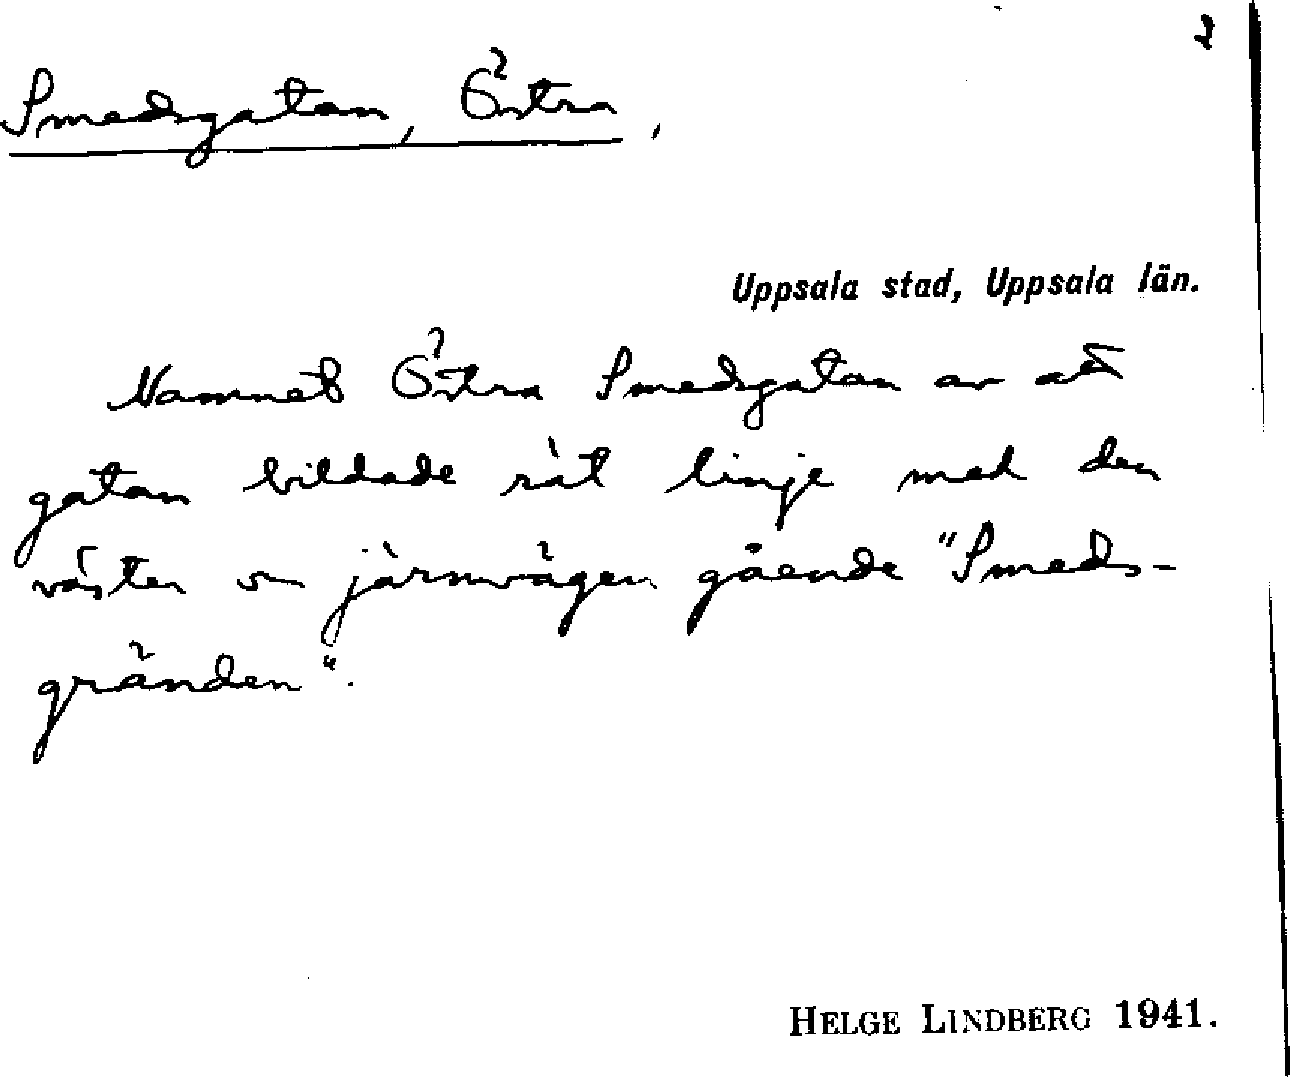 2
Smedsgatan, Östra,
Uppsala stad, Uppsala län.
Namnet Östra Smedsgatan av att
gatan bildade rät linje med den
väster om järnvägen gående "Smeds-
gränden".
HELGE LINDBERG 1941.